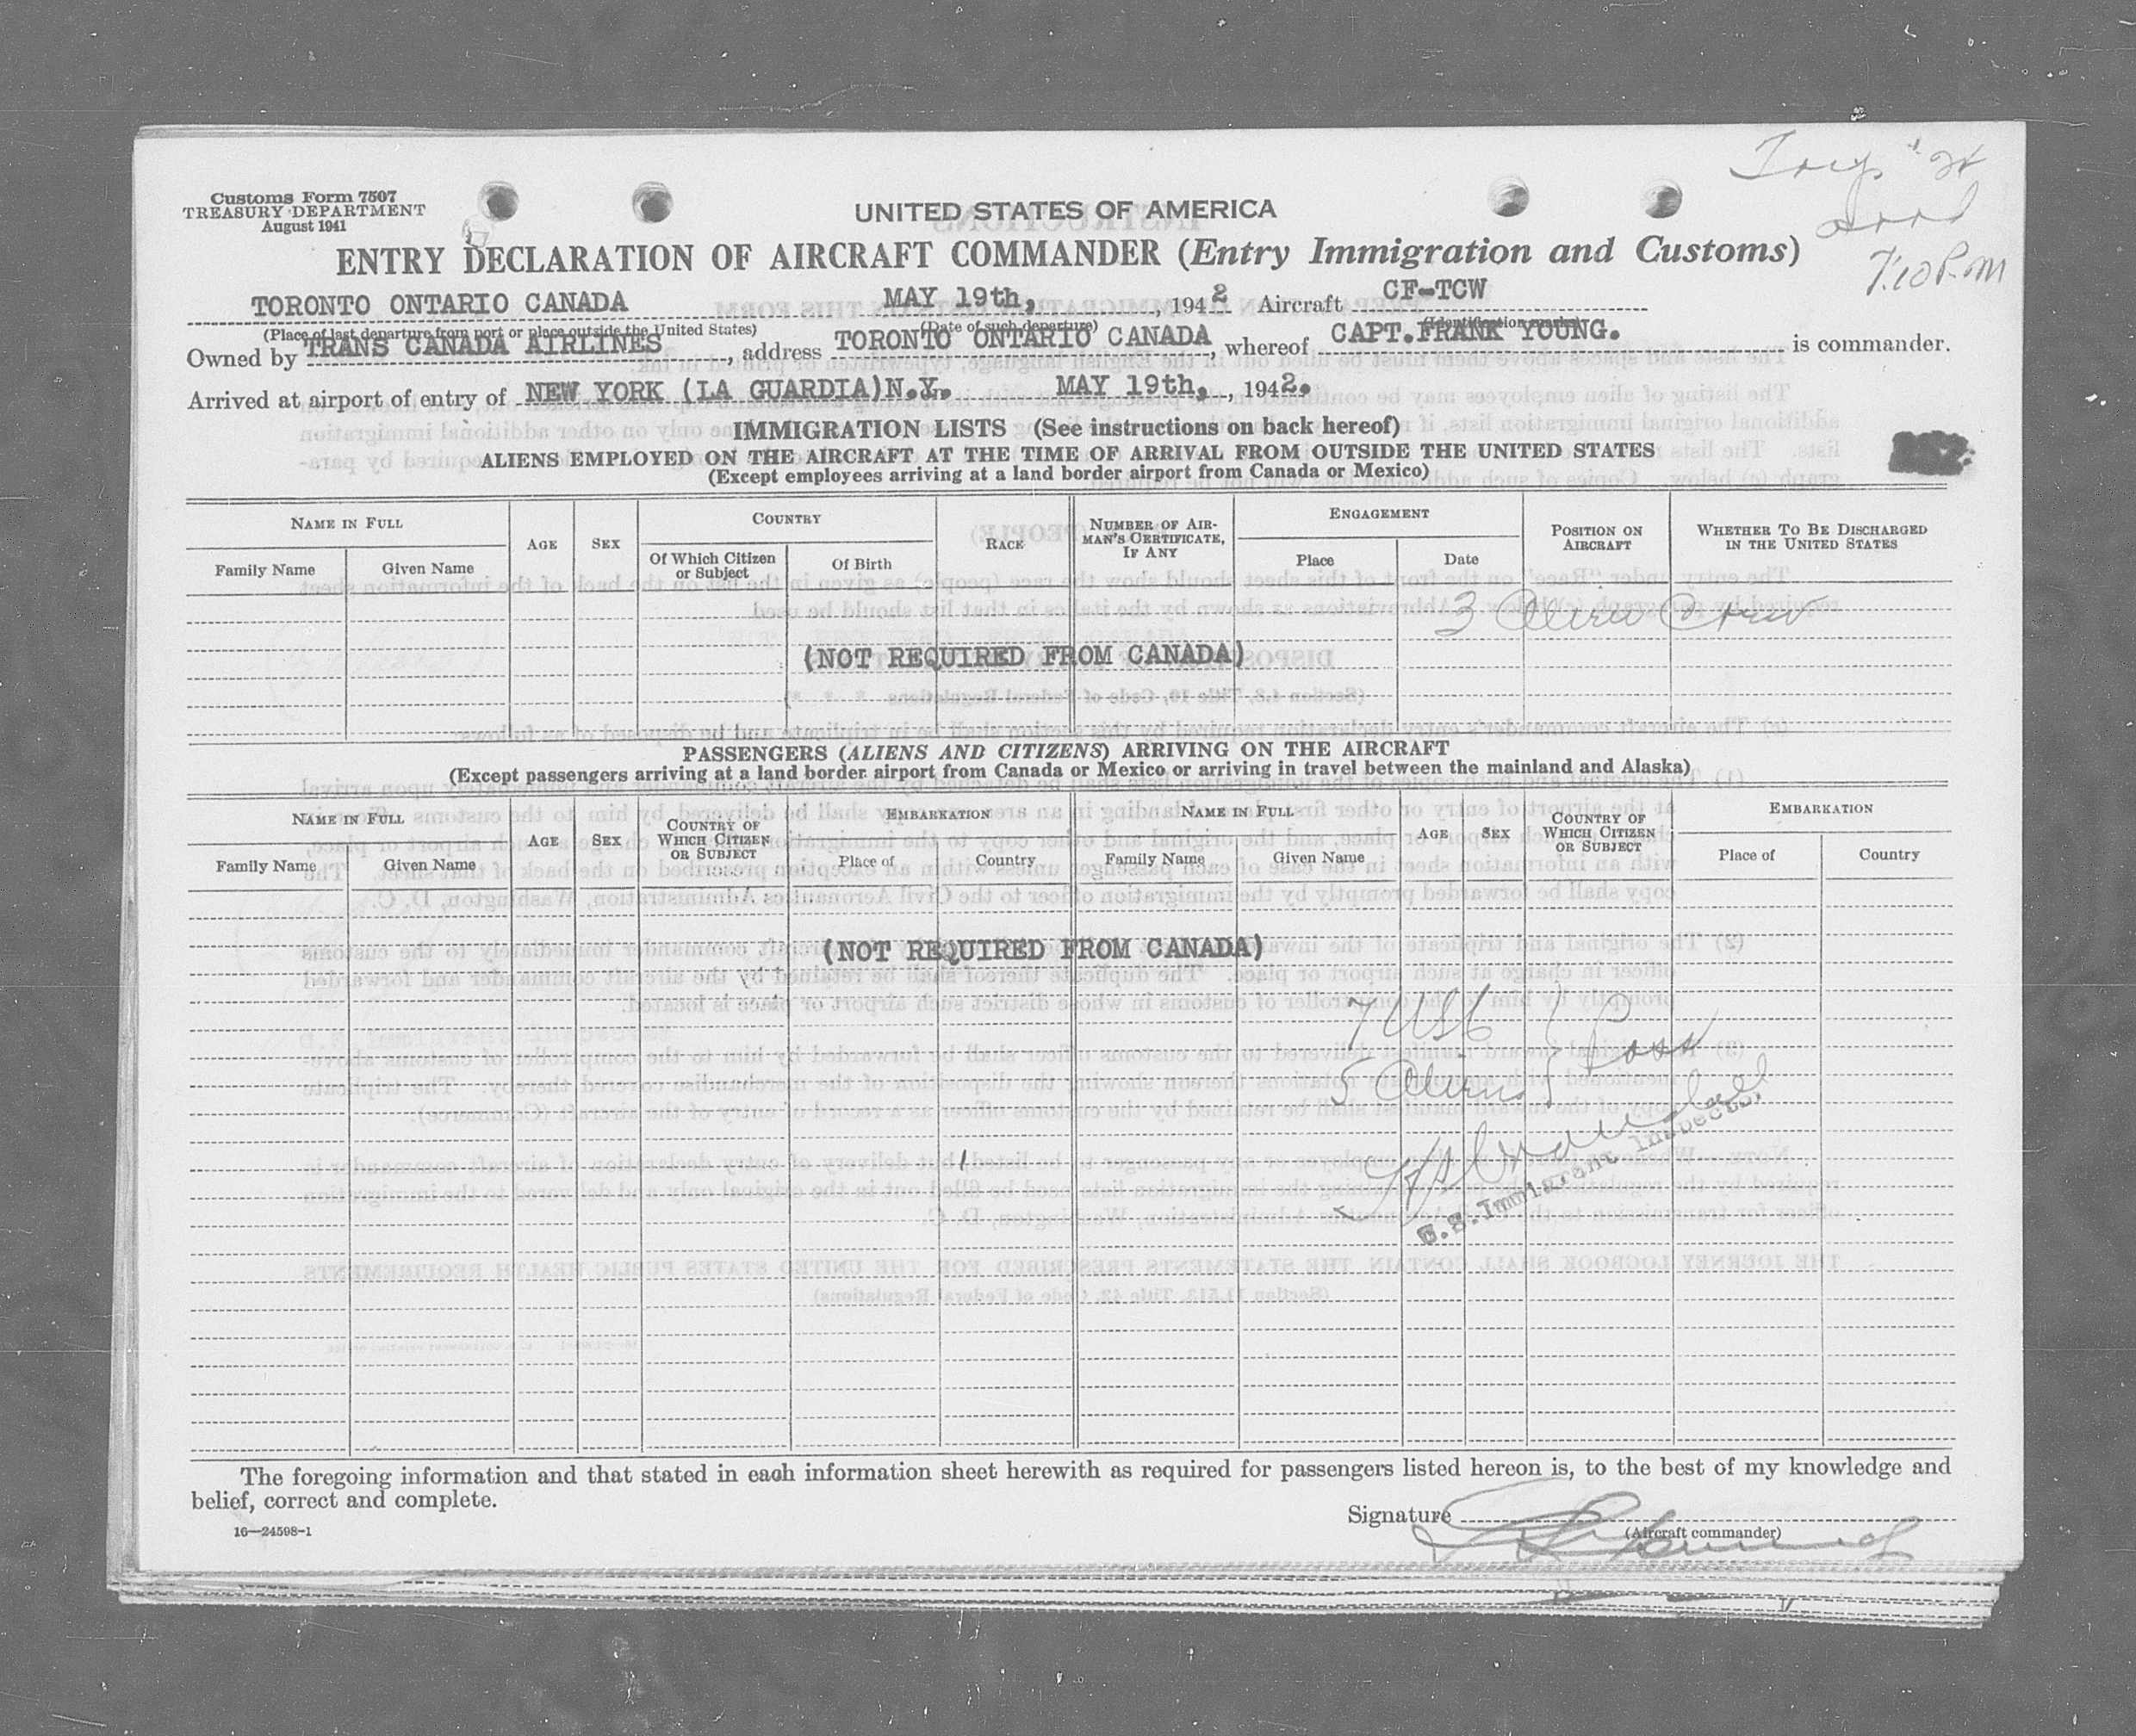 Customs Form 7507
TREASURY DEPARTMENT
August 1941
UNITED STATES OF AMERICA
ENTRY DECLARATION OF AIRCRAFT COMMANDER (Entry Immigration and Customs)
7:10 P.M
TORONTO ONTARIO CANADA MAY 19th, , 1942 Aircraft CF-TCW
(Place of last departure from port or place outside the United States) (Date of such departure) (Identification marks)
Owned by TRANS CANADA AIRLINES , address TORONTO ONTARIO CANADA , whereof CAPT.FRANK YOUNG. is commander.
Arrived at airport of entry of NEW YORK (LA GUARDIA)N.Y. MAY 19th, , 1942.
IMMIGRATION LISTS (See instructions on back hereof)
ALIENS EMPLOYED ON THE AIRCRAFT AT THE TIME OF ARRIVAL FROM OUTSIDE THE UNITED STATES
(Except employees arriving at a land border airport from Canada or Mexico)
NAME IN FULL AGE SEX COUNTRY RACE NUMBER OF AIRMAN'S CERTIFICATE, IF ANY ENGAGEMENT POSITION ON AIRCRAFT WHETHER TO BE DISCHARGED IN THE UNITED STATES
Family Name Given Name Of Which Citizen or Subject Of Birth Place Date
3 Alien Crew
(NOT REQUIRED FROM CANADA)
PASSENGERS (ALIENS AND CITIZENS) ARRIVING ON THE AIRCRAFT
(Except passengers arriving at a land border airport from Canada or Mexico or arriving in travel between the mainland and Alaska)
NAME IN FULL AGE SEX COUNTRY OF WHICH CITIZEN OR SUBJECT EMBARKATION NAME IN FULL AGE SEX COUNTRY OF WHICH CITIZEN OR SUBJECT EMBARKATION
Family Name Given Name Place of Country Family Name Given Name Place of Country
(NOT REQUIRED FROM CANADA)
7 USC
5 Aliens } Pass
U.S.Immigrant Inspector
The foregoing information and that stated in each information sheet herewith as required for passengers listed hereon is, to the best of my knowledge and
belief, correct and complete.
Signature
(Aircraft commander)
16—24598-1